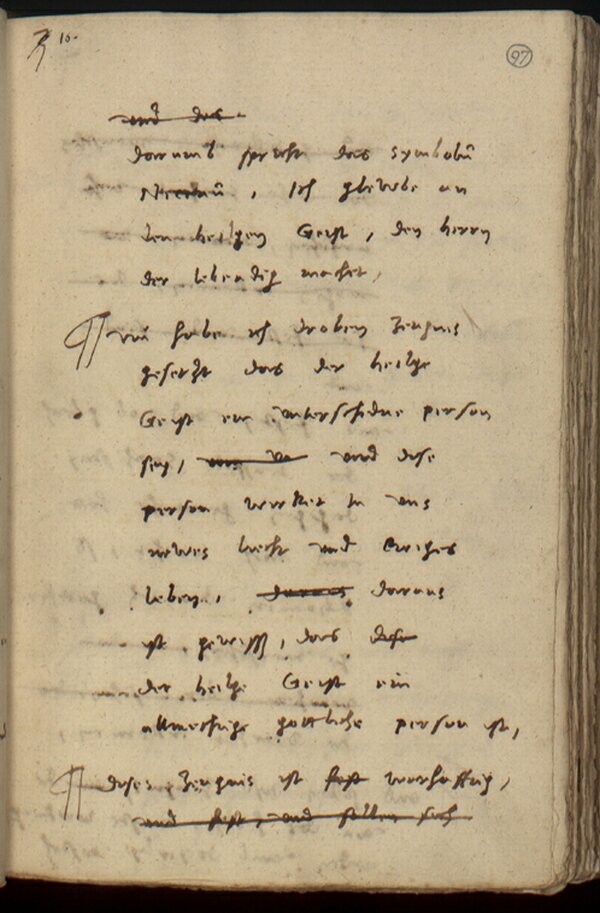 10.
97
und das
darumb spricht das symbolũ
Nicenũ, Ich glewbe an
den heilgen Geist, den herrn
der lebendig machet,
Nu habe ich droben Zeugnis
gesetzt das der heilge
Geist ein unterschidne person
sey, und dise
person wirket in uns
newes liecht und Ewiges
leben, daraus daraus
ist gewiss, das dise
der heilge Geist ein
allmechtige gottliche person ist,
dises Zeugnis ist fest warhafftig,
und fest, und sollen sich